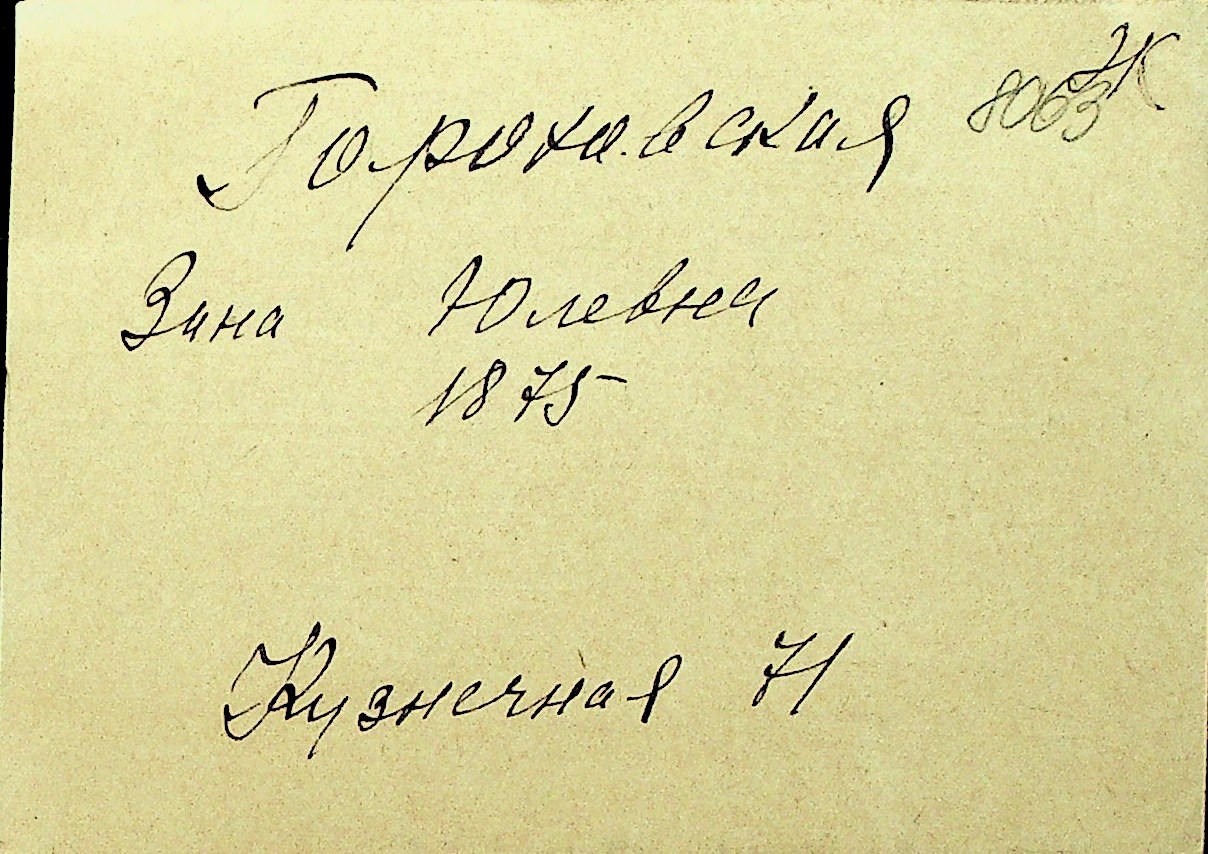 Гороховская 8063
Зина Юлевна
1875
Кузнечная 71